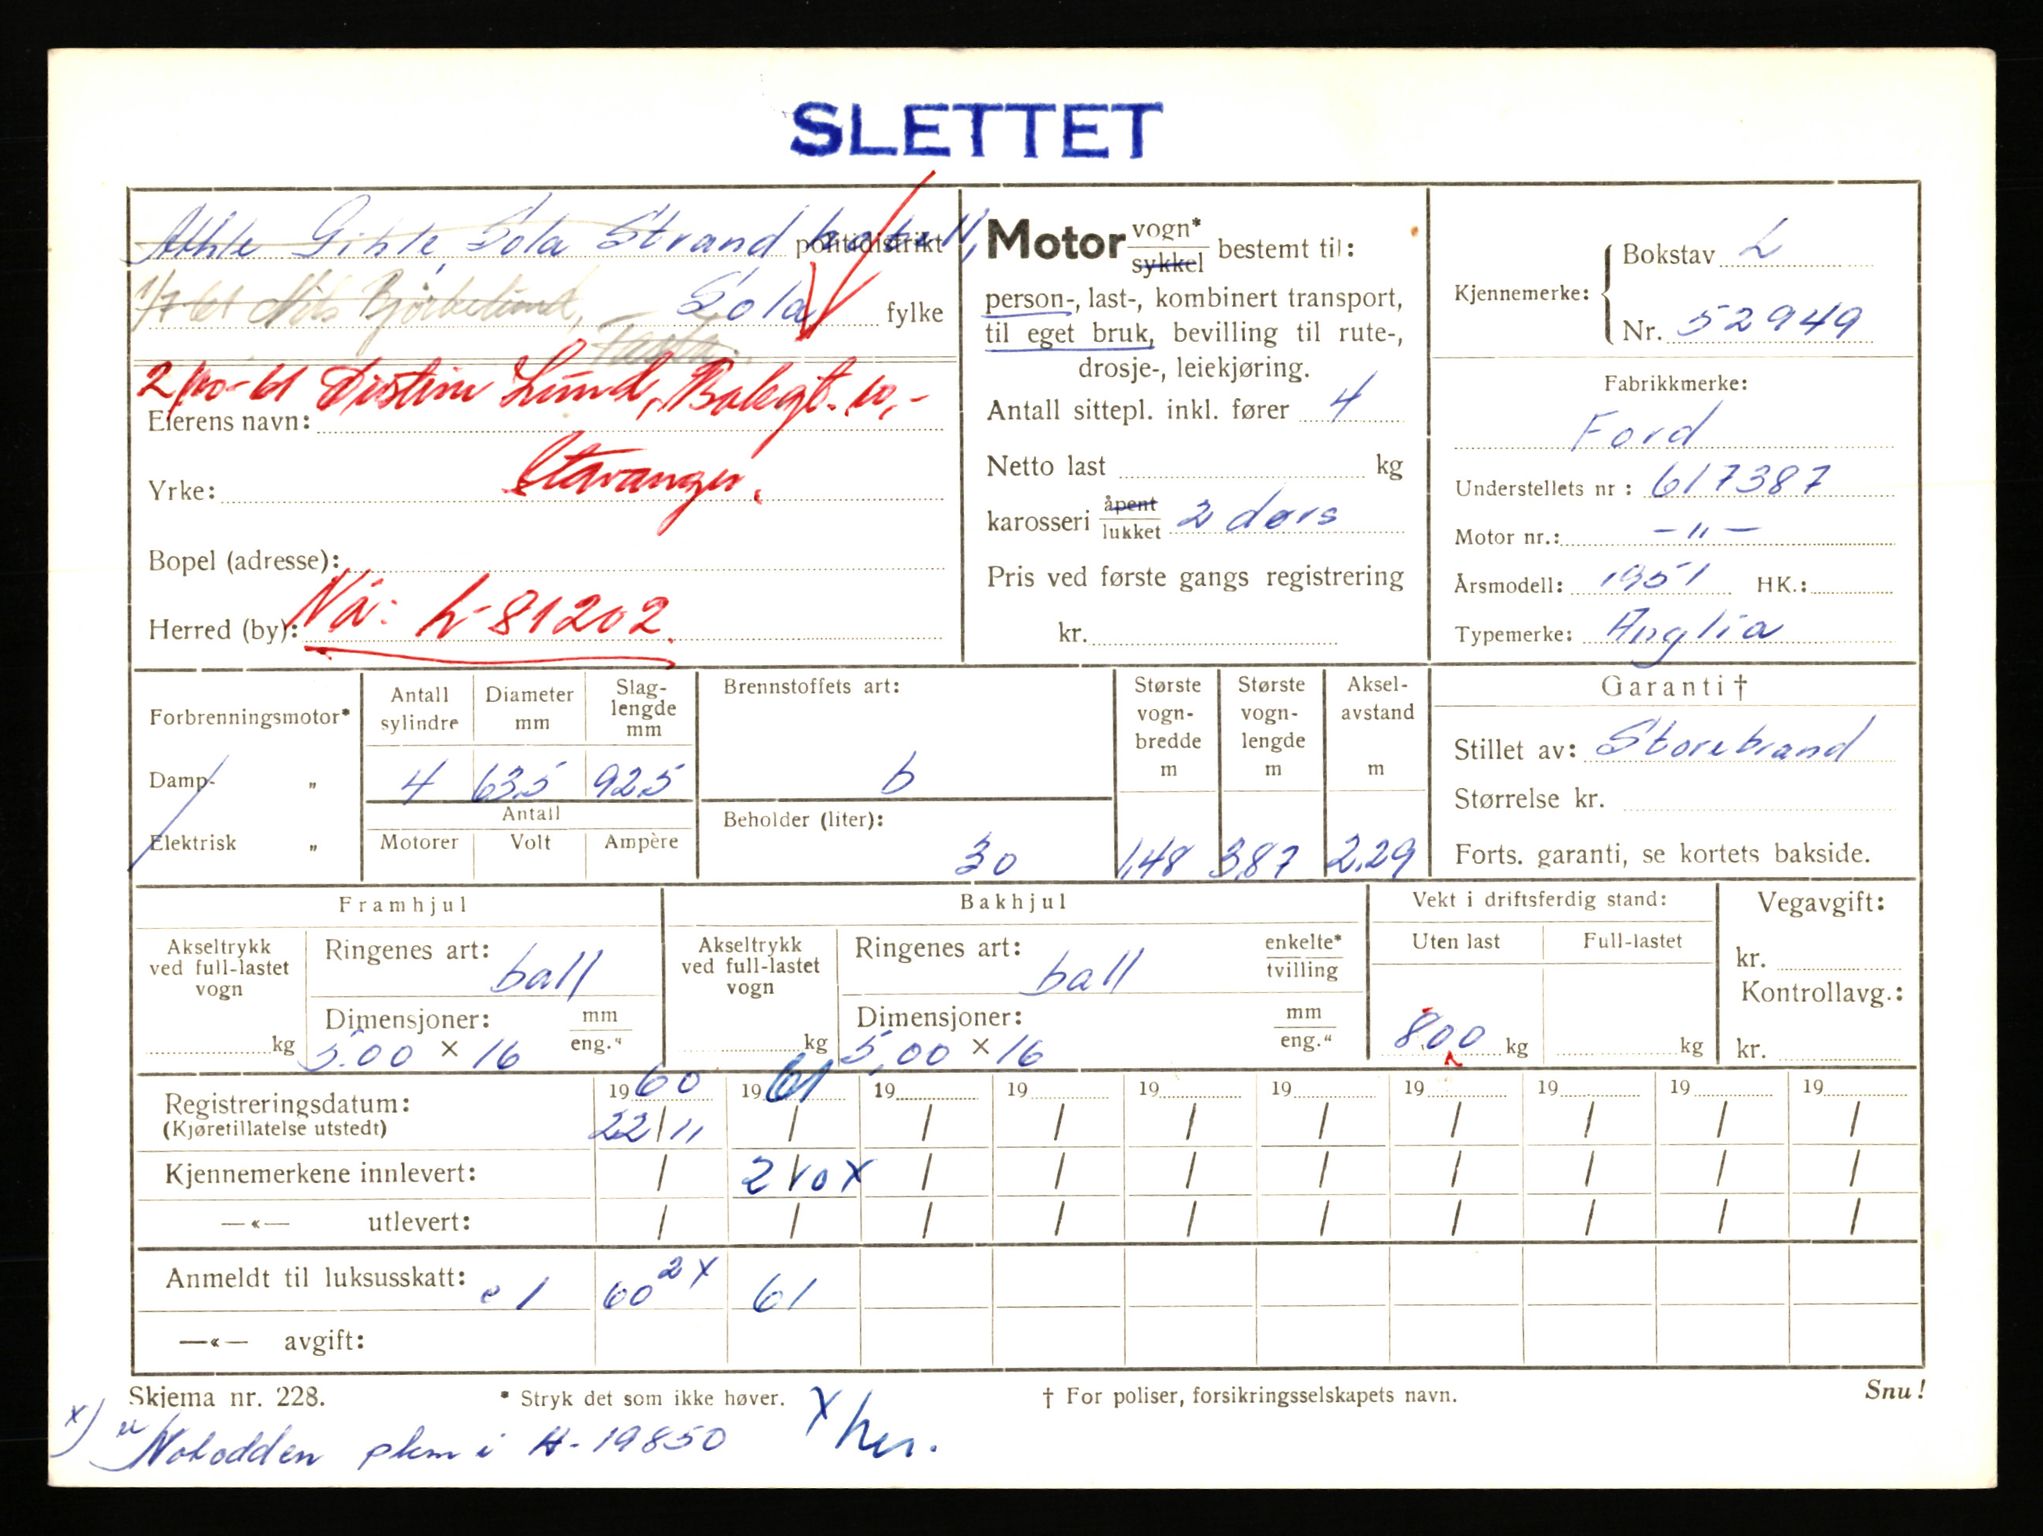 SLETTET
Gihle, Sola Strand hotell, politidistrikt
1/7 61 Nils Bjørkelund, Sola fylke
Tasta.
2/10-61 Lund, Bakegt. 10,-
Eierens navn:
Stavanger.
Yrke:
Bopel (adresse):
Nå: L-81202.
Herred (by):
Motor vogn* sykkel bestemt til:
person-, last-, kombinert transport,
til eget bruk, bevilling til rute-,
drosje-, leiekjøring.
Antall sittepl. inkl. fører 4
Netto last kg
karosseri åpent lukket 2 dørs
Pris ved første gangs registrering
kr.
Kjennemerke: Bokstav L
Nr. 52949
Fabrikkmerke:
Ford
Understellets nr : 617387
Motor nr.: —"—
Årsmodell: 1951 HK.:
Typemerke: Anglia
Forbrenningsmotor*
Damp- „
Elektrisk „
Antall sylindre 4
Diameter mm 63.5
Slag-lengde mm 92.5
Antall
Motorer Volt Ampère
Brennstoffets art:
b
Beholder (liter):
30
Største vogn-bredde m 1,48
Største vogn-lengde m 3,87
Aksel-avstand m 2.29
Garanti †
Stillet av: Storebrand
Størrelse kr.
Forts. garanti, se kortets bakside.
Framhjul
Akseltrykk ved full-lastet vogn kg
Ringenes art: ball
Dimensjoner: mm eng."
5.00 × 16
Bakhjul
Akseltrykk ved full-lastet vogn kg
Ringenes art: ball enkelte* tvilling
Dimensjoner: mm eng."
5,00 × 16
Vekt i driftsferdig stand:
Uten last Full-lastet
800 kg kg
Vegavgift:
kr.
Kontrollavg.:
kr.
1960 1961 19 19 19 19 19 19 19 19
Registreringsdatum: 22/11 / / / / / / / / /
(Kjøretillatelse utstedt)
Kjennemerkene innlevert: / 2/10 x / / / / / / / /
—«— utlevert: / / / / / / / / / /
Anmeldt til luksusskatt: e 1 60 2x 61
—«— avgift:
Skjema nr. 228. * Stryk det som ikke høver. † For poliser, forsikringsselskapets navn. Snu!
x) Notodden pkm i H-19850 x her.